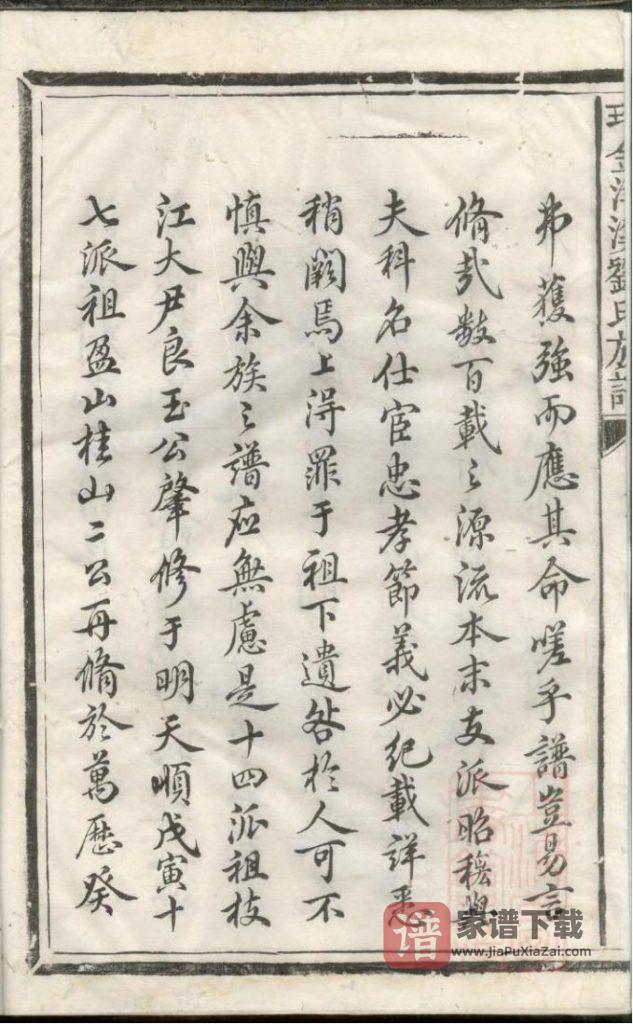 劉氏族
弗獲強而應其命嗟乎譜豈易言
脩哉數百載之源流本末支派昭穆與
夫科名仕宦忠孝節義必紀載詳悉
稍闕焉上淂罪于祖下遺咎於人可不
慎與余族之譜应無慮是十四派祖枝
江大尹良玉公肇修于明天順戊寅十
七派祖盈山桂山二公再脩於萬歷癸
谱
家谱下载
www.JiaPuXiaZai.com